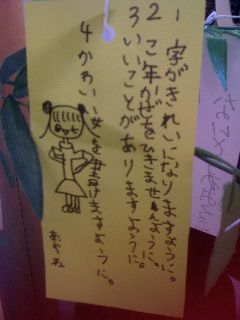 1 字がきれいになりますように。
2 こ年かぜをひきませんように。
3 いいことがありますように。
4 かわいい女を書けますように。
あやね